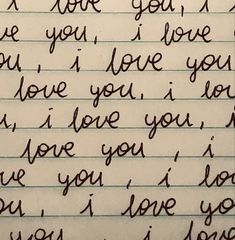 i love you, i
ve you, i love
ou, i love you
love you, i lov
u, i love you, i
love you, i
ve you, i lo
ou, i love yo
you, i love